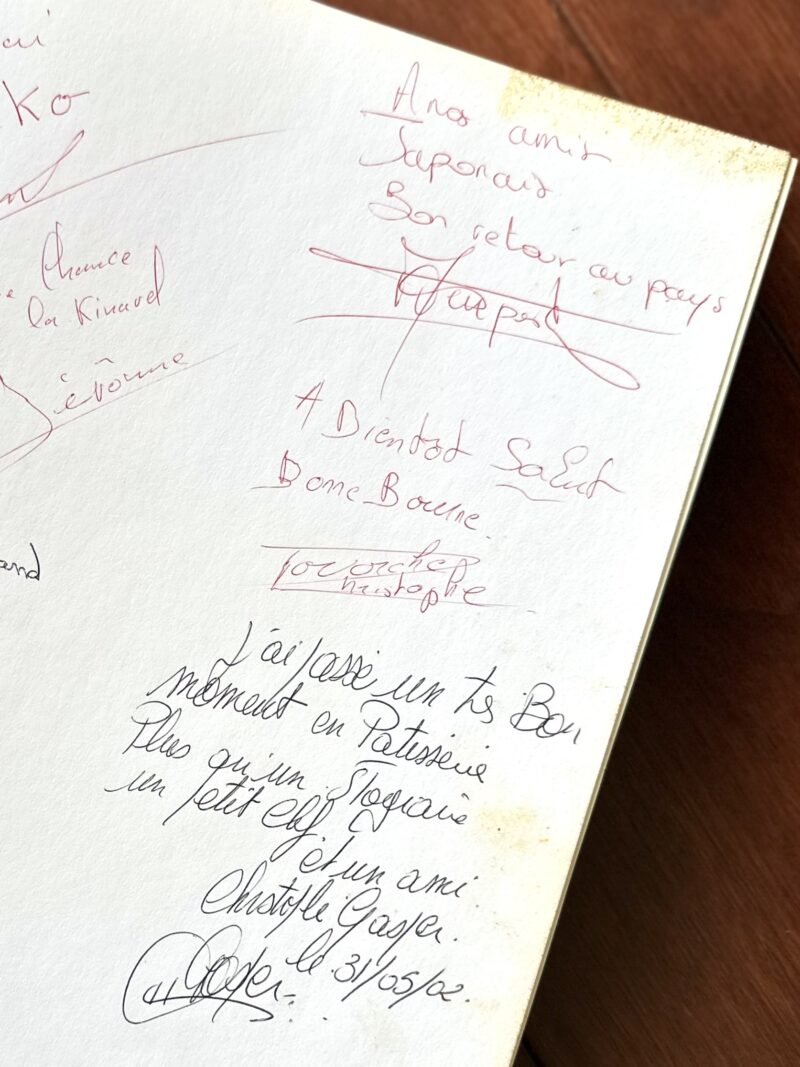 ai
ko
Chance
la Kinavel
Jérôme
and
A nos amis
Japonais
Bon retour au pays
A Bientot Salut
Bonne Bourre
Christophe
J'ai passé un trs Bon
moment en Patisserie
Plus qu'un Stagiaire
un petit chef
et un ami.
Christophe Gasper.
le 31/05/02.
Gasper